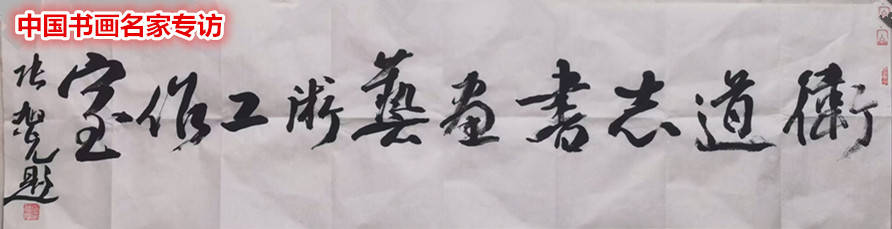 中国书画名家专访
衛道志書畫藝術工作室
张旭光题